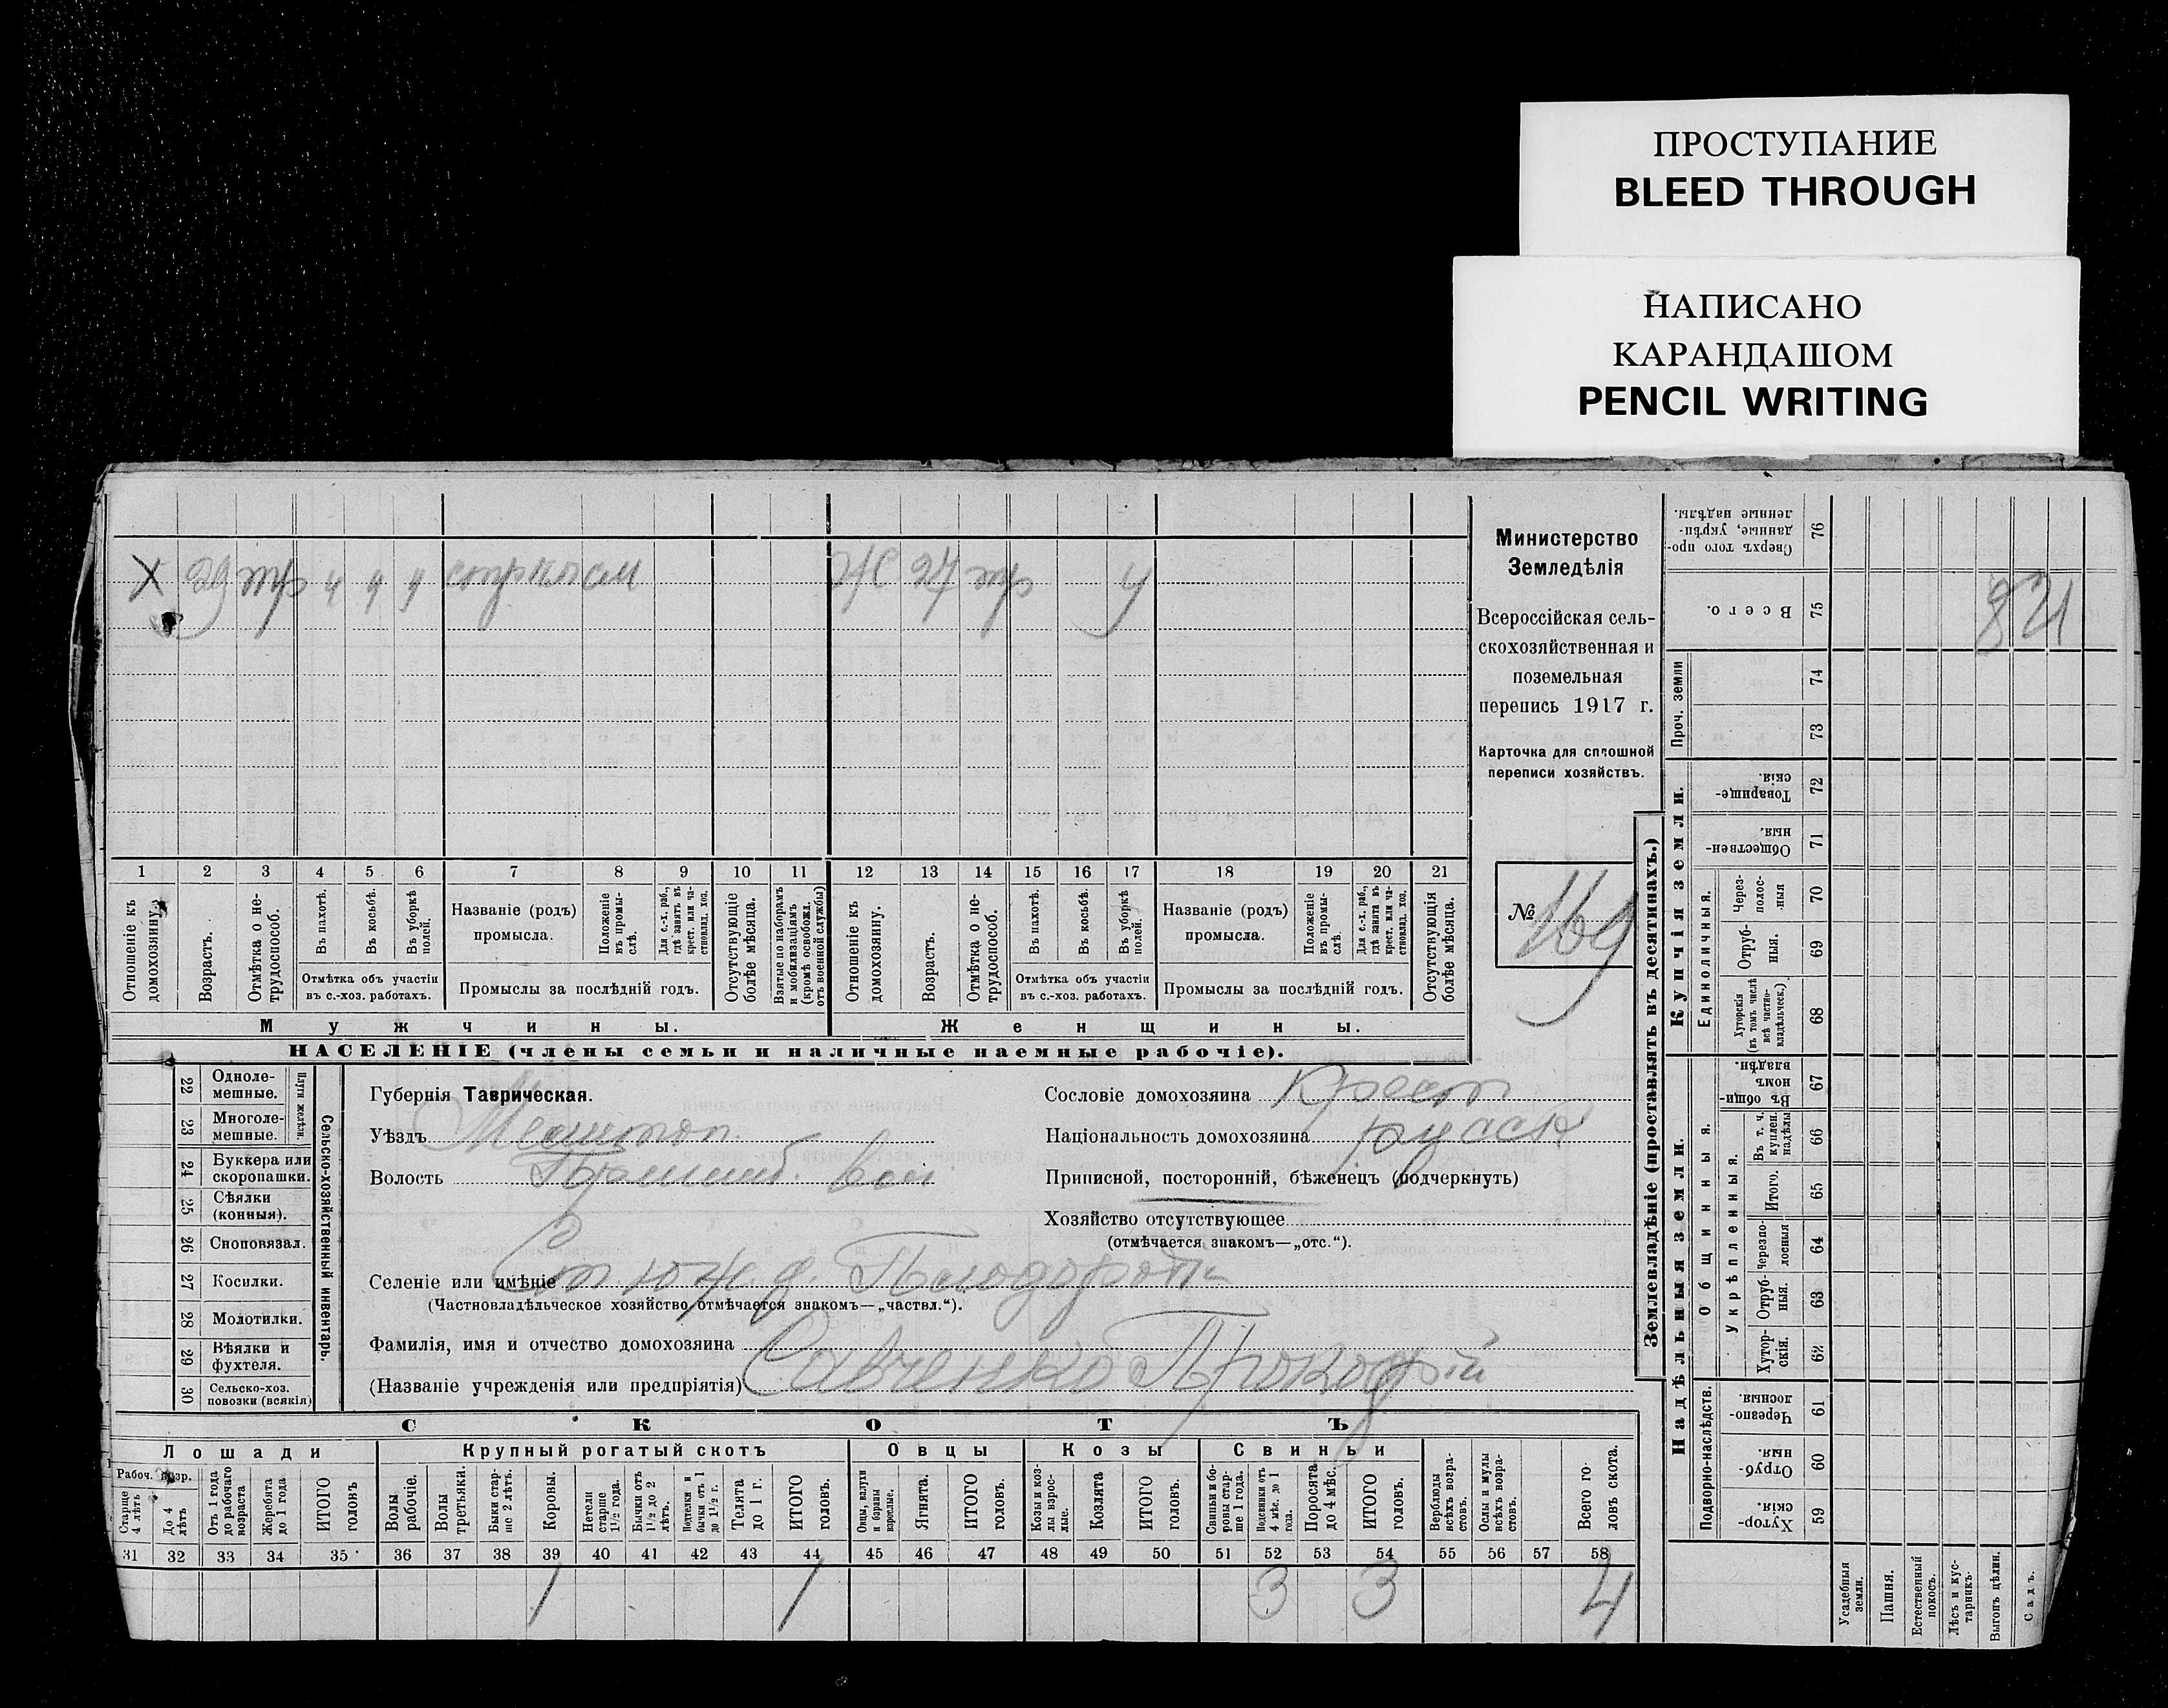 ПРОСТУПАНИЕ
BLEED THROUGH
НАПИСАНО
КАРАНДАШОМ
PENCIL WRITING
X 29 тр ч ч ч Ж 27 тр ч
1 2 3 4 5 6 7 8 9 10 11 12 13 14 15 16 17 18 19 20 21
Отношеніе къ домохозяину.
Возрастъ.
Отмѣтка о нетрудоспособ.
Въ пахотѣ.
Въ косьбѣ.
Въ уборкѣ полей.
Отмѣтка объ участіи
въ с.-хоз. работахъ.
Названіе (родъ)
промысла.
Положеніе въ промыслѣ.
Для с.-х. раб., гдѣ занятъ въ крест. или частновлад. хоз.
Промыслы за послѣдній годъ.
Отсутствующіе болѣе мѣсяца.
Взятые по наборамъ и мобилизаціямъ (кромѣ освобожд. отъ военной службы)
Отношеніе къ домохозяину.
Возрастъ.
Отмѣтка о нетрудоспособ.
Въ пахотѣ.
Въ косьбѣ.
Въ уборкѣ полей.
Отмѣтка объ участіи
въ с.-хоз. работахъ.
Названіе (родъ)
промысла.
Положеніе въ промыслѣ.
Для с.-х. раб., гдѣ занята въ крест. или частновлад. хоз.
Промыслы за послѣдній годъ.
Отсутствующія болѣе мѣсяца.
Мужчины.
Женщины.
НАСЕЛЕНІЕ (члены семьи и наличные наемные рабочіе).
Министерство
Земледѣлія
Всероссійская сель-
скохозяйственная и
поземельная
перепись 1917 г.
Карточка для сплошной
переписи хозяйствъ.
№ 169
22 Одноле-
мешные.
23 Многоле-
мешные.
Плуги желѣзн.
24 Буккера или
скоропашки.
25 Сѣялки
(конныя).
26 Сноповязал.
27 Косилки.
28 Молотилки.
29 Вѣялки и
фухтеля.
30 Сельско-хоз.
повозки (всякія)
Сельско-хозяйственный инвентарь.
Губернія Таврическая.
Уѣздъ Мелитоп.
Волость вол
Селеніе или имѣніе
(Частновладѣльческое хозяйство отмѣчается знакомъ—„частвл.“).
Фамилія, имя и отчество домохозяина
(Названіе учрежденія или предпріятія) Савченко Прокофій
Сословіе домохозяина Крест
Національность домохозяина русск
Приписной, посторонній, бѣженецъ (подчеркнуть)
Хозяйство отсутствующее
(отмѣчается знакомъ—„отс.“).
СКОТЪ
Лошади Крупный рогатый скотъ Овцы Козы Свиньи
Рабоч. возр.
Старше 4 лѣтъ
До 4 лѣтъ
Отъ 1 года до рабочаго возраста
Жеребята до 1 года
ИТОГО головъ
Волы рабочіе.
Волы третьяки.
Быки старше 2 лѣтъ.
Коровы.
Нетели старше 1½ года.
Бычки отъ 1½ до 2 лѣтъ.
Подтелки и бычки отъ 1 до 1½ г.
Телята до 1 г.
ИТОГО головъ.
Овцы, валухи и бараны взрослые.
Ягнята.
ИТОГО головъ.
Козы и козлы взрослые.
Козлята
ИТОГО головъ.
Свиньи и боровы старше 1 года.
Подсвинки отъ 4 мѣс. до 1 года.
Поросята до 4 мѣс.
ИТОГО головъ.
Верблюды всѣхъ возрастовъ.
Ослы и мулы всѣхъ возрастовъ.
Всего головъ скота.
31 32 33 34 35 36 37 38 39 40 41 42 43 44 45 46 47 48 49 50 51 52 53 54 55 56 57 58
1 1 3 3 4
Землевладѣніе (проставлять въ десятинахъ.)
Надѣльныя земли.
Купчія земли.
Проч. земли
Подворно-наслѣдств.
Общинныя.
Укрѣпленныя.
Единоличныя.
Сверхъ того проданные, укрѣпленные надѣлы. 76
Всего. 75
74
73
Товарищескія. 72
Общественныя. 71
Черезполосныя 70
Отрубныя. 69
Хуторскія (въ томъ числѣ всѣ частновладѣльческ.) 68
Въ общинномъ владѣн. 67
Въ т. ч. куплен. надѣлы 66
Итого. 65
Черезполосныя 64
Отрубныя. 63
Хуторскія. 62
Черезполосныя. 61
Отрубныя. 60
Хуторскія. 59
Усадебныя земли.
Пашня.
Естественный покосъ.
Лѣсъ и кустарникъ.
Выгонъ цѣлин.
Садъ.